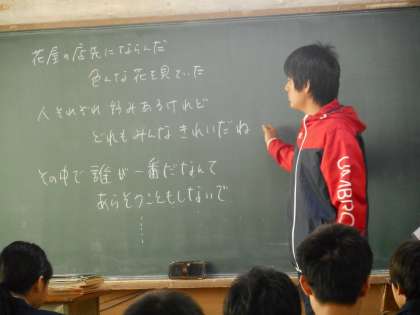 花屋の店先にならんだ
色んな花を見ていた
人それぞれ好みあるけれど
どれもみんなきれいだね
その中で誰が一番だなんて
あらそうこともしないで
……
UMBRO